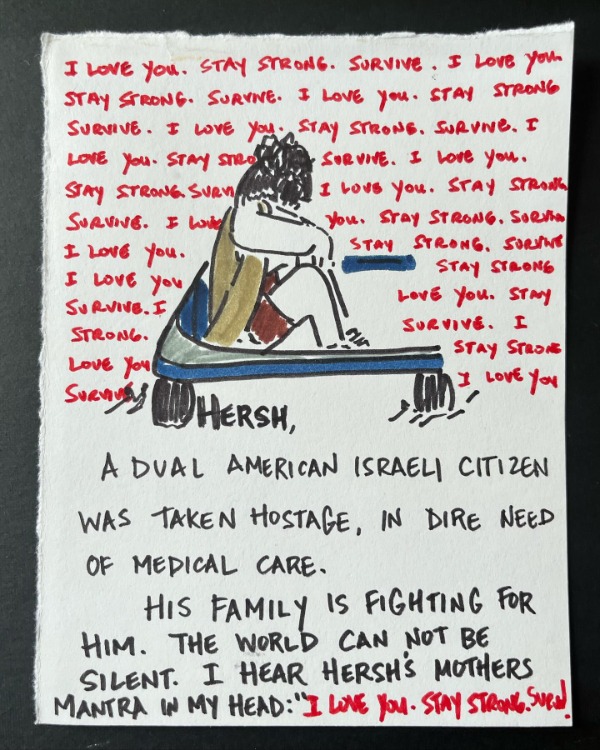 I LOVE YOU. STAY STRONG. SURVIVE. I LOVE YOU.
STAY STRONG. SURVIVE. I LOVE YOU. STAY STRONG
SURVIVE. I LOVE YOU. STAY STRONG. SURVIVE. I
LOVE YOU. STAY STRO SURVIVE. I LOVE YOU.
STAY STRONG. SURV I LOVE YOU. STAY STRONG
SURVIVE. I LOVE YOU. STAY STRONG. SURVIVE
I LOVE YOU. STAY STRONG. SURVIVE
I LOVE YOU STAY STRONG
SURVIVE. I LOVE YOU. STAY
STRONG. SURVIVE. I
LOVE YOU STAY STRONG
SURVIVE I LOVE YOU
HERSH,
A DUAL AMERICAN ISRAELI CITIZEN
WAS TAKEN HOSTAGE, IN DIRE NEED
OF MEDICAL CARE.
HIS FAMILY IS FIGHTING FOR
HIM. THE WORLD CAN NOT BE
SILENT. I HEAR HERSH'S MOTHERS
MANTRA IN MY HEAD: "I LOVE YOU. STAY STRONG.